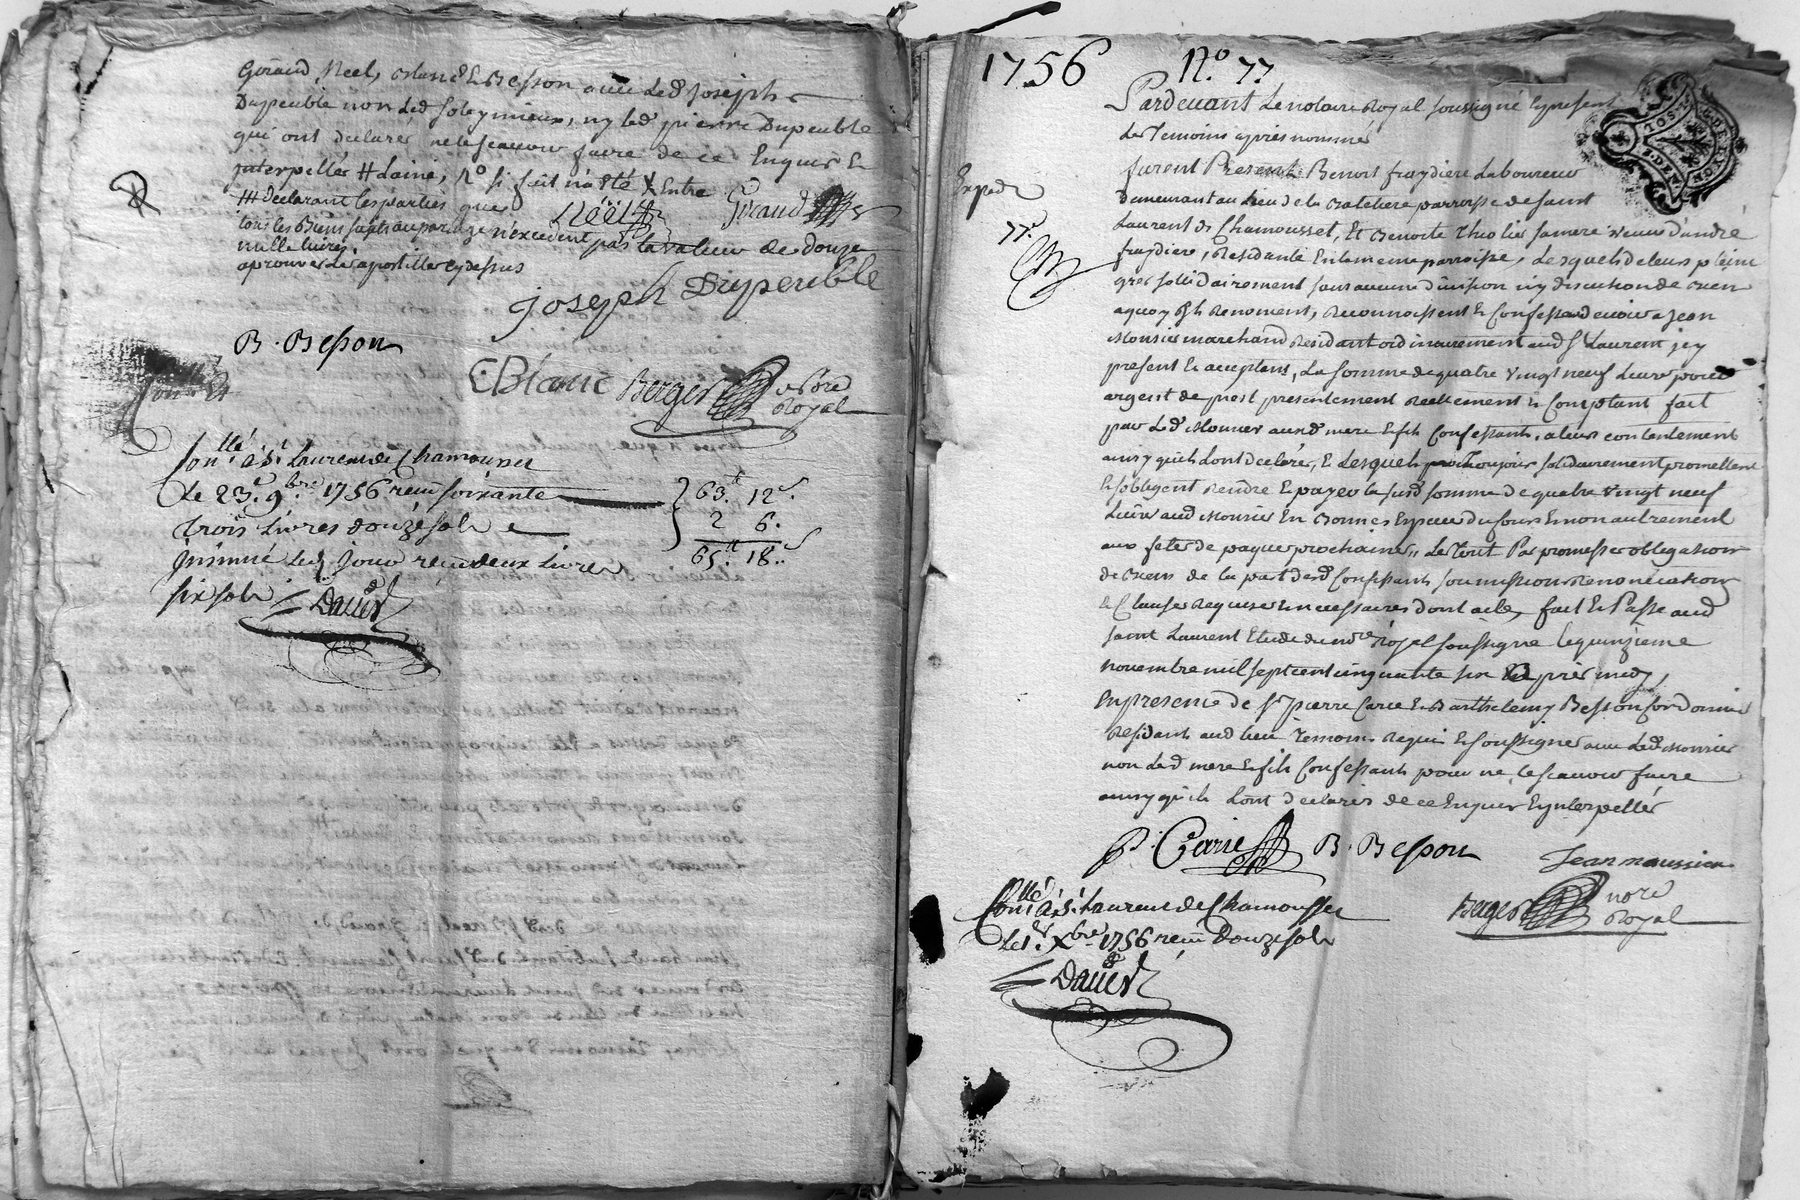 Giraud Neel, Blanc & Besson avec led Joseph
Dupeuble non led Soleymieux, ny led pierre Dupeuble
qui ont declarés ne le scavoir faire de ce Enquis &
interpellés # L'ainé, no si fait n'a été X Entre
# declarant les parties que
tous les Biens sujets au partage n'excedent pas la valleur de douze
mille livres.
aprouver les apostilles cy dessus
Nöel
Giraud
Joseph Dupeuble
B. Besson
C Blanc Berger nore
Royal
Conllé à St Laurent de Chamousset
Le 23e 9bre 1756 reçu soixante
trois Livres douze sols
63.tt 12s.
2 6.
65.tt 18..s
Insinué led Jour reçu deux Livres
six sols
Dauer
1756 No 77.
Pardevant Le notaire Royal soussigné Expresent
Les Temoins après nommé
Exped
furent Present Benoit fraydiere Laboureur
77.e
Demeurant au Lieu de la parroisse de saint
Laurent de Chamousset, Et Benoite Théolier sa mere veuve d'andré
fraydiere, Residante En la meme parroisse, Lesquels de leur plein
gré sollidairement sans aucune division ny discution de bien
a quoy ils Renoncent, Reconnoissent & Confessent devoir a Jean
Mousier marchand Residant ordinairement aud St Laurent, icy
present & acceptant, La somme de quatre vingt neuf Livre pour
argent de prest presentement Reellement & Comptant fait
par Led Mousier auxd mere & fils Confessants, a leur contentement
ainsy qu'ils L'ont declaré, & Lesquels Toujours solidairement promettent
& s'obligent Rendre & payer la susd somme de quatre vingt neuf
Livre aud Mousier En Bonnes Especes du Cours & non autrement
aux fetes de paques prochaines, Le Tout Par promesses obligation
de biens de la part desd Confessants soumissions Renonciations
& Clauses Requises & necessaires dont acte, fait & Passé aud
saint Laurent Etude du nore Royal soussigné le quinzieme
novembre mil sept cent cinquante six après midy,
En presence de Sr pierre Carie & Barthelemy Besson Cordonnier
Residants aud Lieu Temoins Requis & soussignés avec Led Mousier
non Led mere & fils Confessants pour ne le scavoir faire
ainsy qu'ils L'ont declarés de ce Enquis & interpellés
P. Carie B. Besson Jean moussier
Berger nore
Royal
Conllé à St Laurent de Chamousset
Le 1er Xbre 1756 reçu Douze sols
Dauer